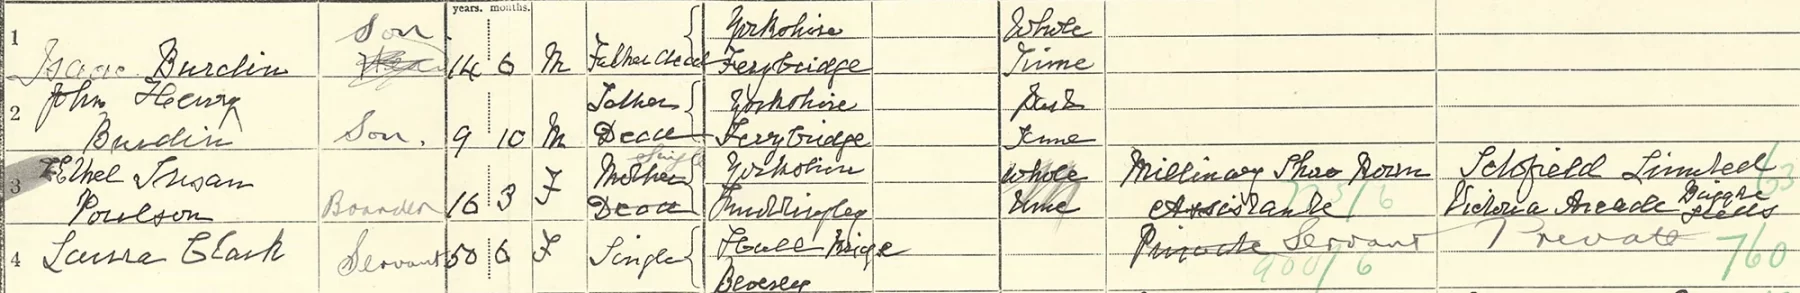 years. months.
1 Son Yorkshire Whole
Isaac Burdin 14 6 M Father dead Ferrybridge Time
John Henry Father Yorkshire Part
2 Burdin Son. 9 10 M Dead Ferrybridge Time
3 Ethel Susan Mother Yorkshire Whole Millinary Show Room Schofield Limited
Poulson Boarder 16 3 F Dead Time Assistante Victoria Arcade Leeds
4 Laura Clark Servant 50 6 F Single Hull Bridge Private Servant Private
Beverley 900/6 760